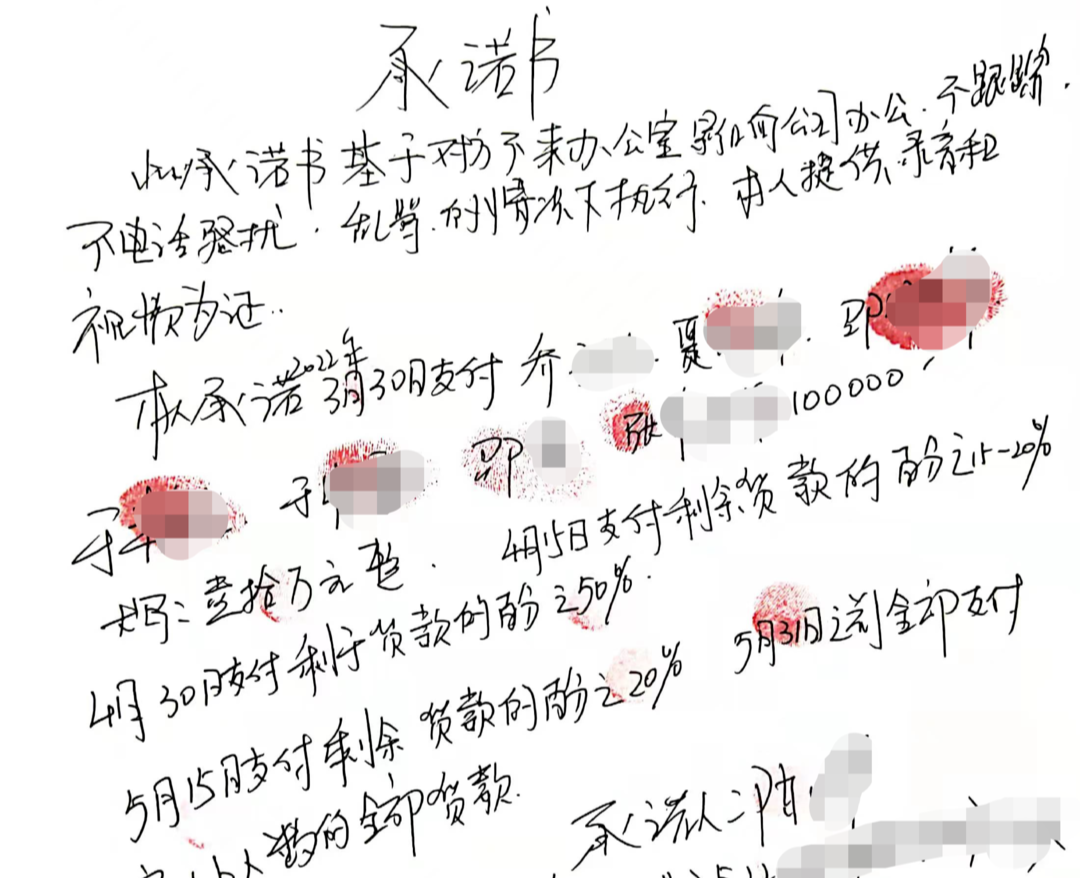 承诺书
此承诺书基于对方不来办公室影响公司办公.不跟踪.
不电话骚扰.乱骂.的情况下执行.本人提供录音和
视频为证..
本人承诺2022年3月30日支付 乔 夏 邵
100000
大写:壹拾万元整. 4月15日支付剩余货款的百分之15-20%
4月30日支付剩于货款的百分之50%.
5月15日支付剩余货款的百分之20% 5月31日之前全部支付
人数的全部货款.
承诺人: